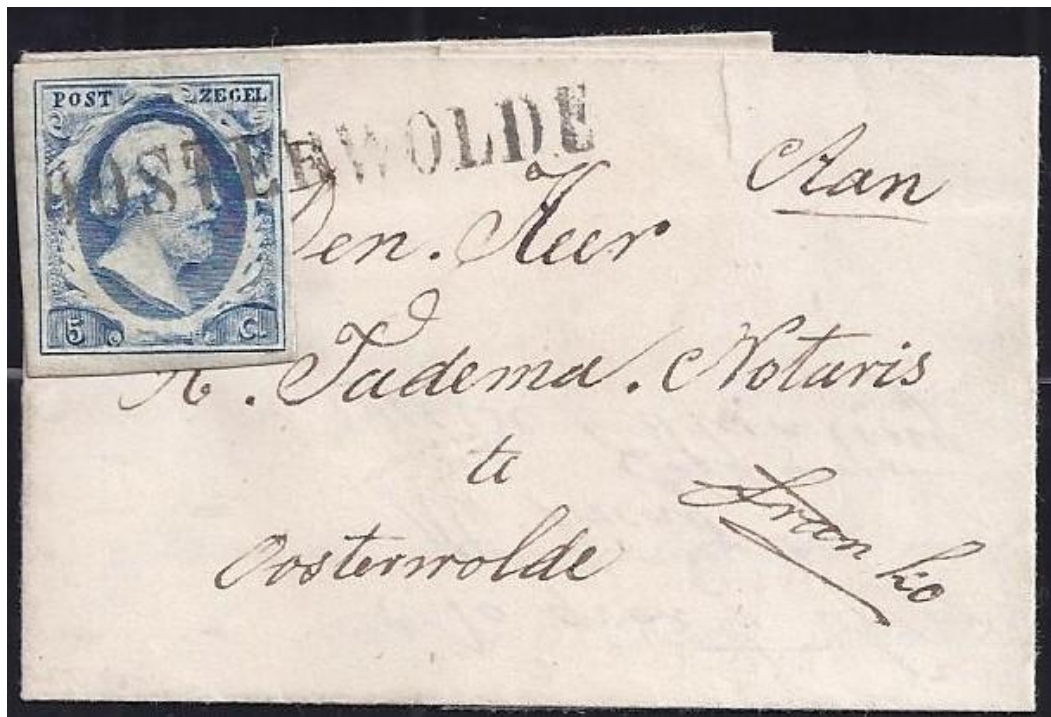 POST ZEGEL
OOSTERWOLDE
5 C.
Aan
Den. Heer
Tadema. Notaris
te
Oosterwolde
Franko